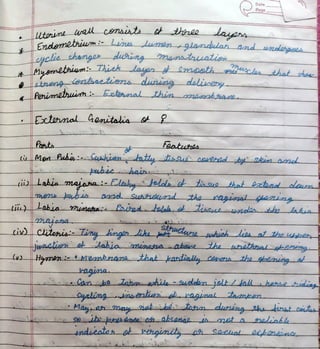 Date
Page
• Uterine wall consists of three layers
* Endometrium:- Lines lumen, glandular and undergoes
cyclic changes during menstruation
* Myometrium:- Thick layer of smooth muscle that show
strong contractions during delivery
* Perimetrium:- External thin membrane.
• External Genitalia of ♀
Parts Features
(i) Mon Pubis:- Cushion of fatty tissue covered by skin and
pubic hair.
(ii) Labia majora:- Fleshy folds of tissue that extend down
mons pubis and surround the vaginal opening
(iii) Labia minora:- Paired folds of tissue under the labia
majora.
(iv) Clitoris:- Tiny finger like structure which lies at the upper
junction of labia minora above the urethral opening.
(v) Hymen:- • Membrane that partially covers the opening of
vagina.
• Can be torn while - sudden jolt / fall, horse riding
cycling, insertion of vaginal tampon
• May, or may not be torn during the first coitus
so its presence or absence is not a reliable
indicator of virginity or sexual experience.